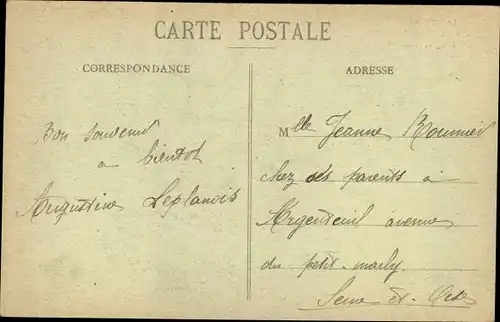 CARTE POSTALE
CORRESPONDANCE
ADRESSE
Bon souvenir
a bientot
Augustine
Mlle Jeanne
chez ses parents à
Argenteuil avenue
du petit-marly
Seine et Oise